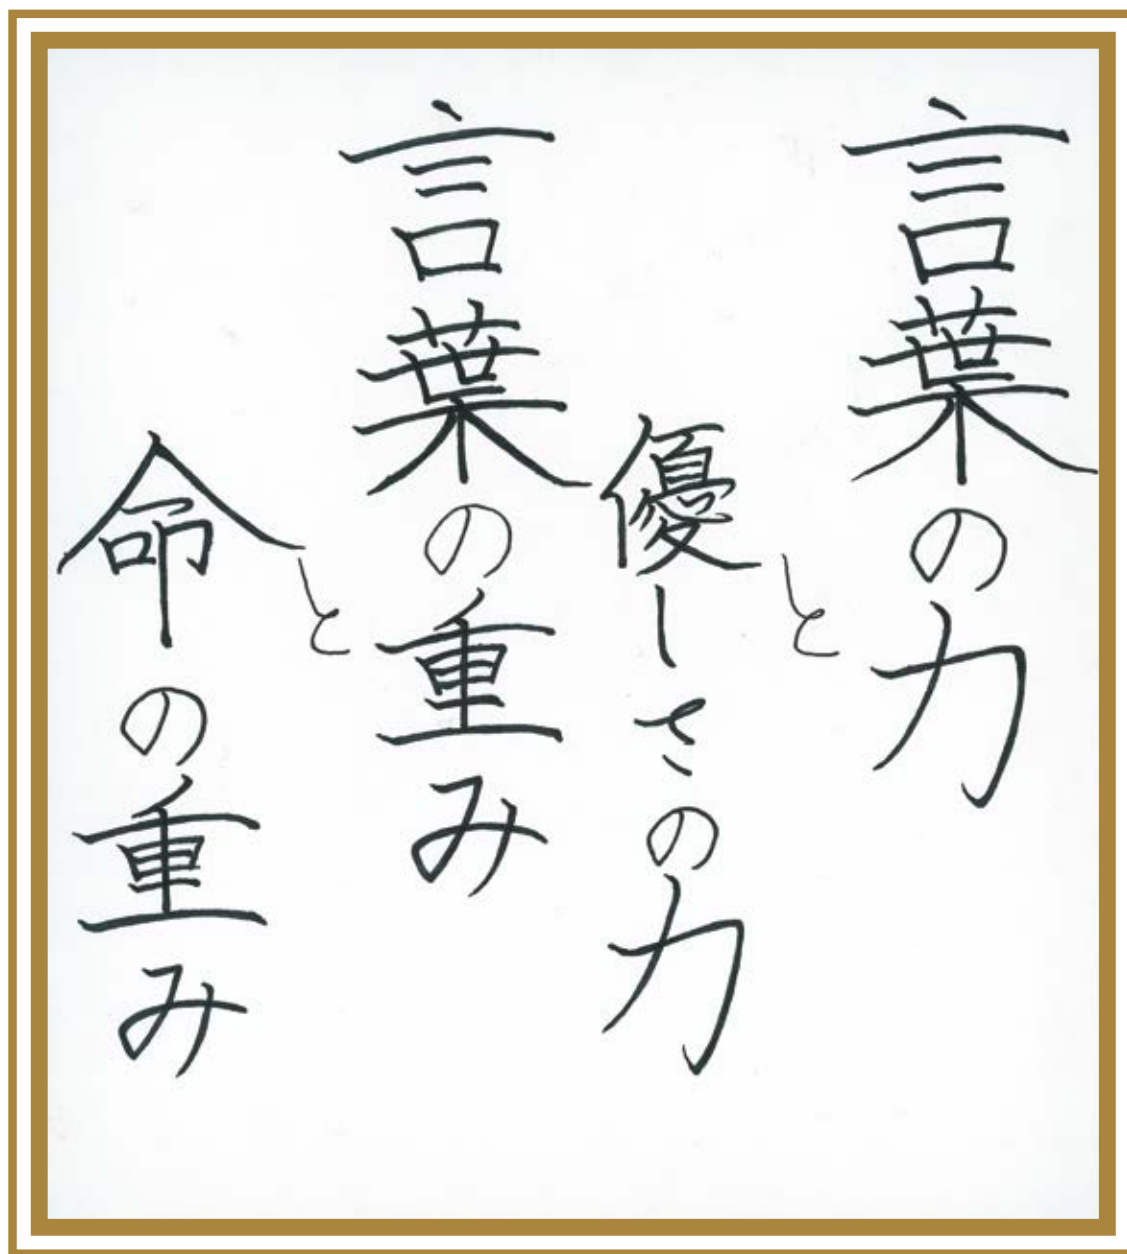 言葉の力
と
優しさの力
言葉の重み
と
命の重み